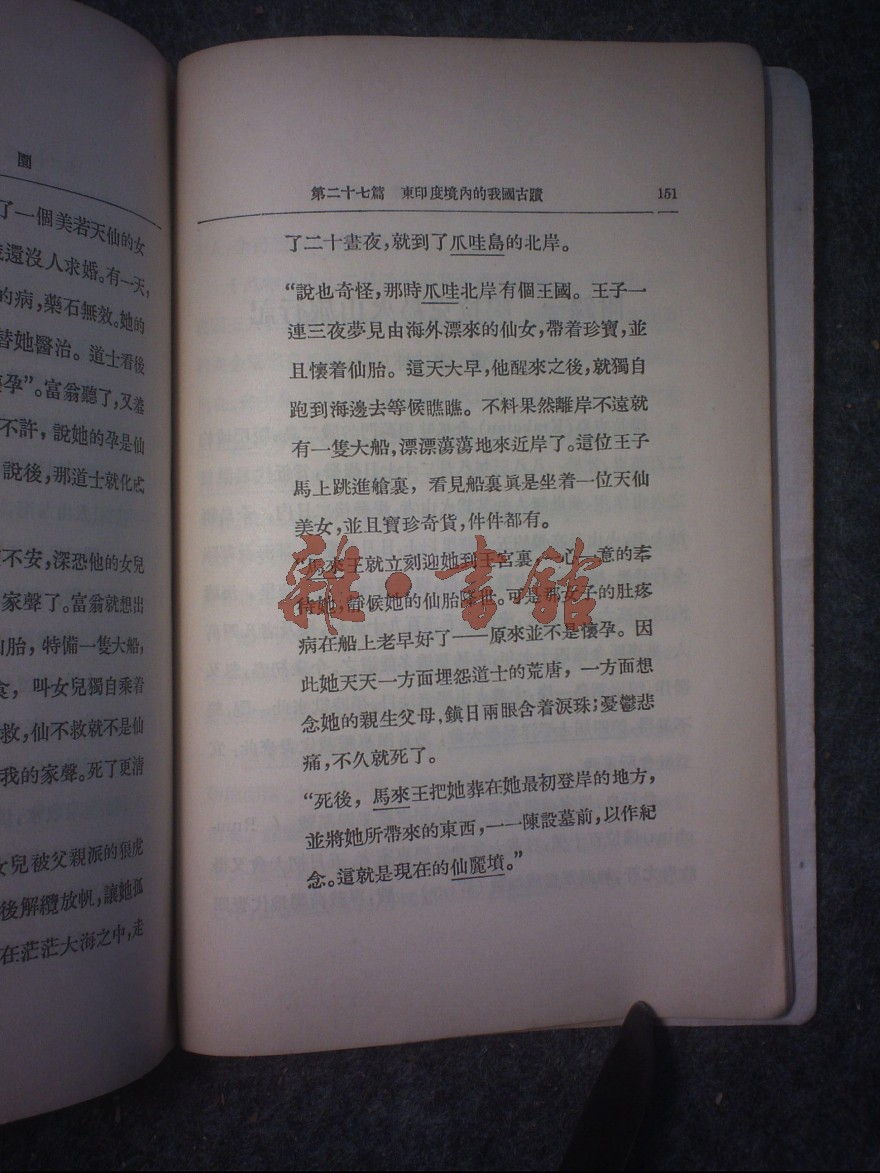 園
了一個美若天仙的女
還沒人求婚。有一天,
的病,藥石無效。她的
替她醫治。道士看後
孕”。富翁聽了,又羞
不許,說她的孕是仙
說後,那道士就化成
不安,深恐他的女兒
家聲了。富翁就想出
胎,特備一隻大船,
食,叫女兒獨自乘着
救,仙不救就不是仙
我的家聲。死了更清
女兒被父親派的狼虎
後解纜放帆,讓她孤
在茫茫大海之中,走
第二十七篇 東印度境內的我國古蹟 151
了二十晝夜,就到了爪哇島的北岸。
“說也奇怪,那時爪哇北岸有個王國。王子一
連三夜夢見由海外漂來的仙女,帶着珍寶,並
且懷着仙胎。這天大早,他醒來之後,就獨自
跑到海邊去等候瞧瞧。不料果然離岸不遠就
有一隻大船,漂漂蕩蕩地來近岸了。這位王子
馬上跳進艙裏,看見船裏眞是坐着一位天仙
美女,並且寶珍奇貨,件件都有。
“馬來王就立刻迎她到王宮裏,一心一意的
待她,靜候她的仙胎降世。可是那女子的肚疼
病在船上老早好了——原來並不是懷孕。因
此她天天一方面埋怨道士的荒唐,一方面想
念她的親生父母,鎭日兩眼含着淚珠;憂鬱悲
痛,不久就死了。
“死後,馬來王把她葬在她最初登岸的地方,
並將她所帶來的東西,一一陳設墓前,以作紀
念。這就是現在的仙麗墳。”
雜·書館